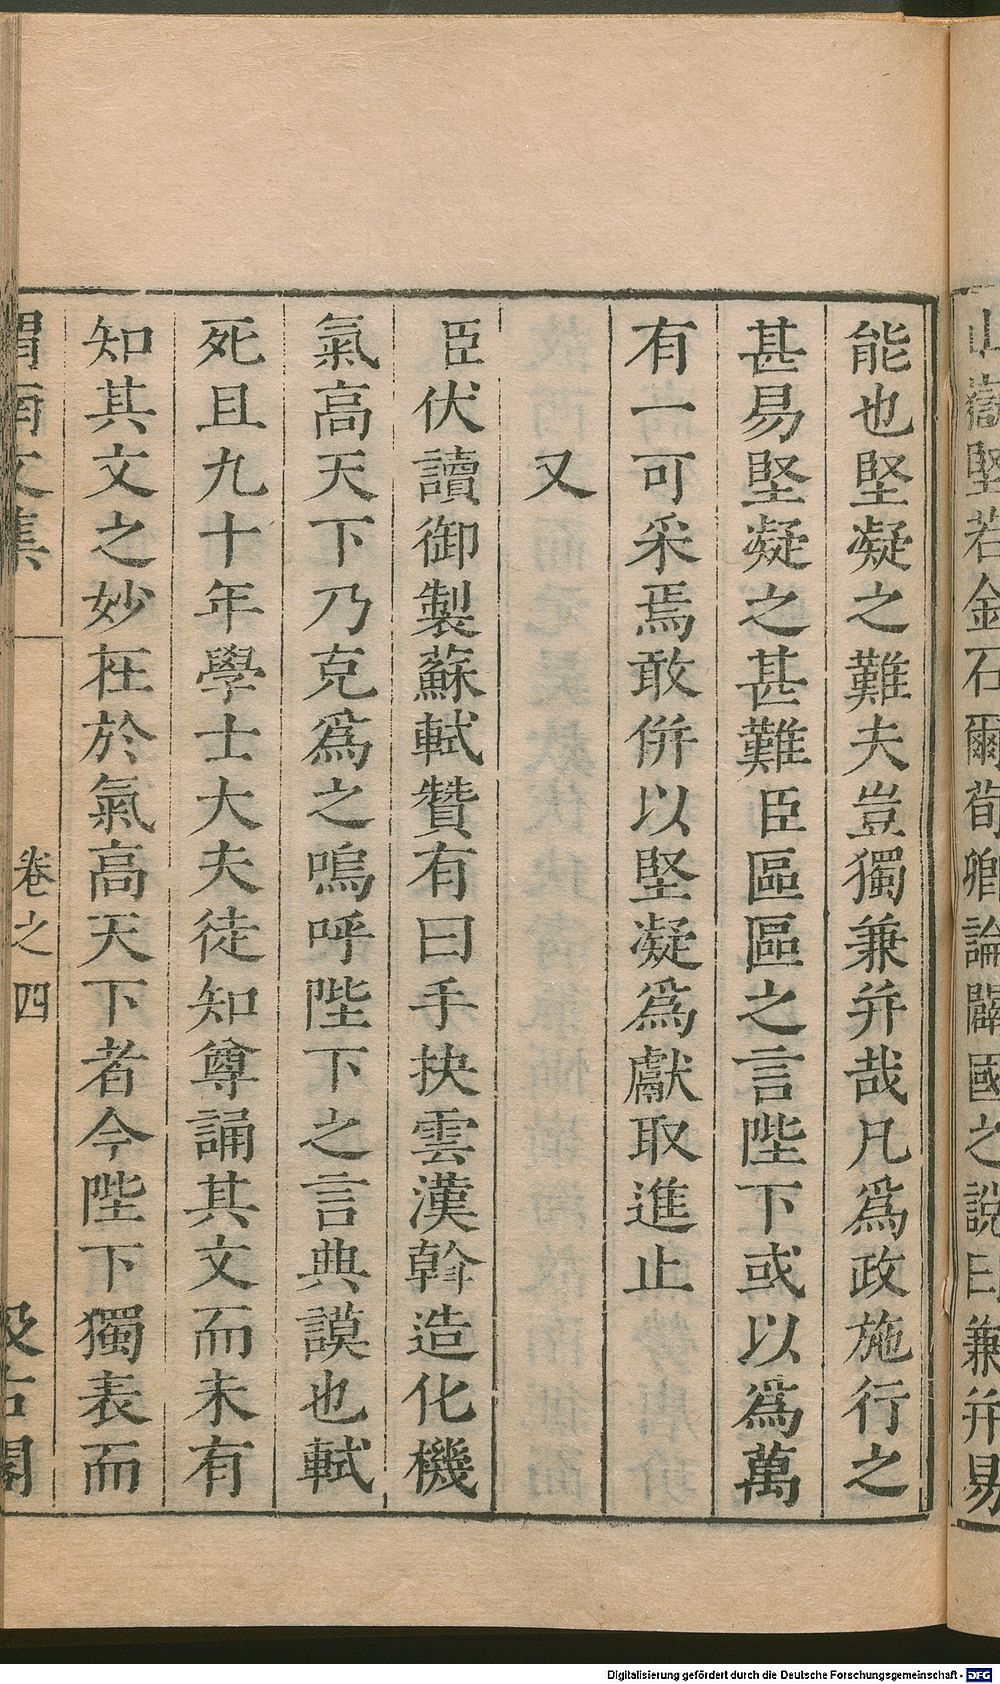 山嶽堅若金石爾荀卿論闢國之說曰兼并易
能也堅凝之難夫豈獨兼并哉凡爲政施行之
甚易堅凝之甚難臣區區之言陛下或以爲萬
有一可采焉敢併以堅凝爲獻取進止
又
臣伏讀御製蘇軾贊有曰手抉雲漢斡造化機
氣高天下乃克爲之嗚呼陛下之言典謨也軾
死且九十年學士大夫徒知尊誦其文而未有
知其文之妙在於氣高天下者今陛下獨表而
渭南文集 卷之四 汲古閣
Digitalisierung gefördert durch die Deutsche Forschungsgemeinschaft - DFG